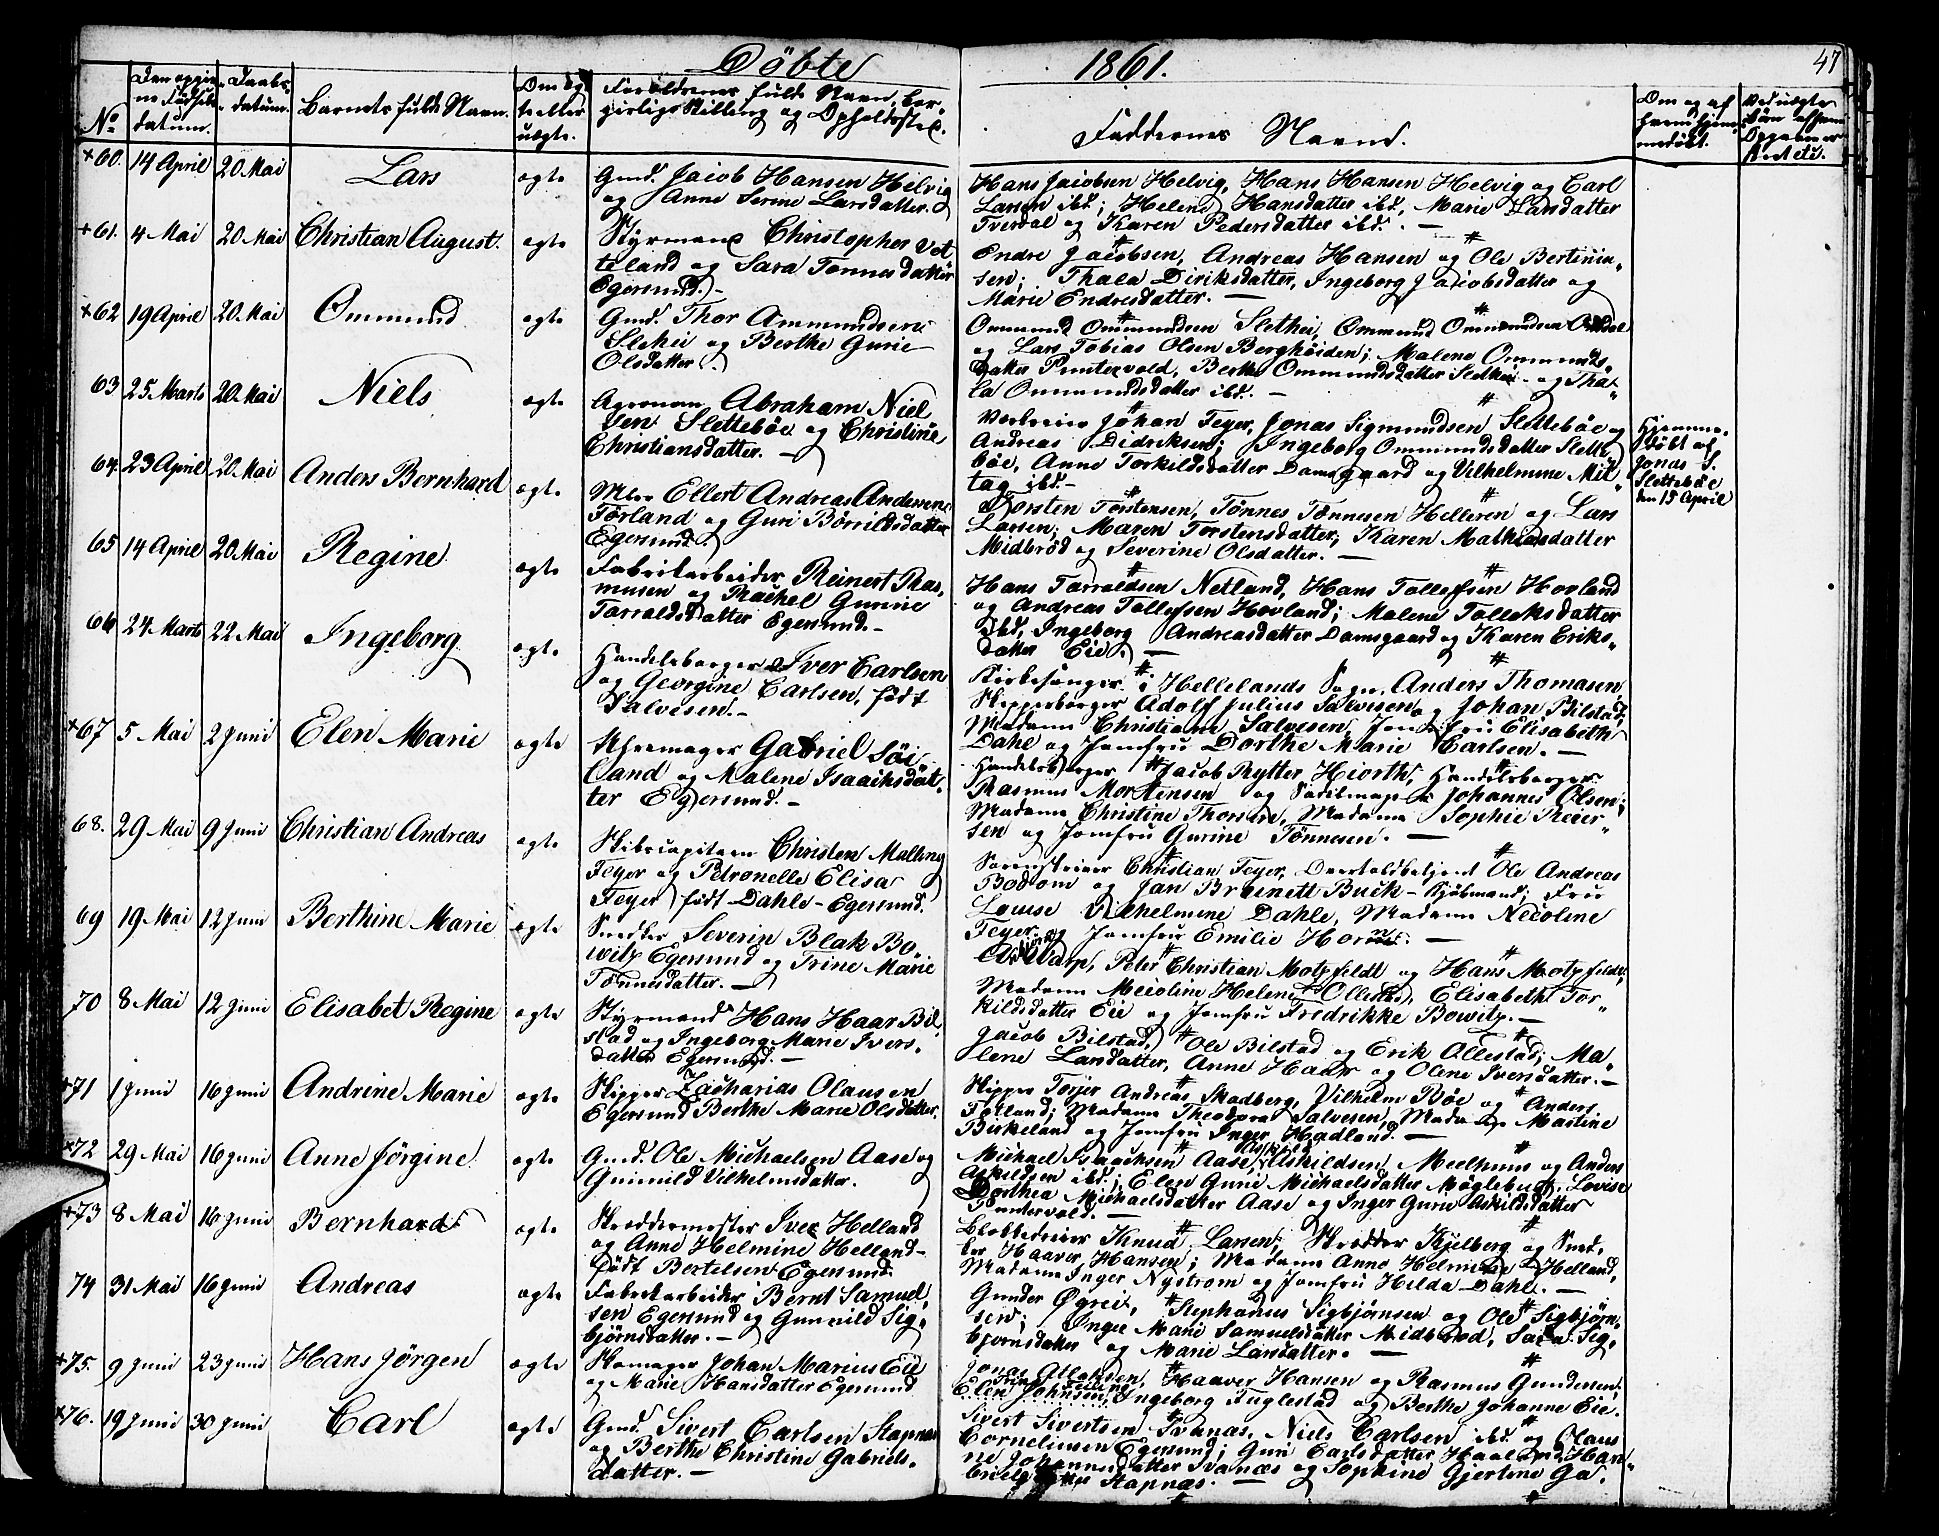 Döbte 1861. 47
No
Den opgivne Fødselsdatum.
Daabsdatum.
Barnets fulde Navn.
Om ægte eller uægte.
Forældrenes fulde Navn, borgerlige Stilling og Opholdssted.
Faddernes Navne.
Om og af hvem hjemmedöbt.
+60. 14 April 20 Mai Lars ægte
Gmd. Jacob Hansen Helvig
og Anne Serine Larsdatter.
Hans Jacobsen Helvig, Hans Hansen Helvig og Carl
Larsen ibd; Helene Hansdatter ibd, Marie Larsdatter
Tverdal og Karen Pedersdatter ibd. —
+61. 4 Mai 20 Mai Christian August. ægte
Styrmand Christopher Vet
teland og Sara Tønnesdatter
Egersund. —
Endre Jacobsen, Andreas Hansen og Ole Bertiniu„
sen; Thala Diriksdatter, Ingeborg Jacobsdatter og
Marie Endresdatter. —
+62 19 April 20 Mai Ommund ægte
Gmd. Thor Ommundsen
Slethei og Berthe Gurie
Olsdatter.
Ommund Ommundsen Slethei, Ommund Ommundsen
og Lars Tobias Olsen Berghöiden; Malene Ommunds„
datter Puntervold, Berthe Ommundsdatter Slethei og Tha„
la Ommundsdatter ibd. —
63 25 Marts 20 Mai Niels ægte
Agronom Abraham Niel
sen Slettebøe og Christine
Christiansdatter. —
Johan Feyer, Jonas Sigmundsen Slettebøe og
Andreas Didriksen; Ingeborg Ommundsdatter Slette
bøe, Anne Torkildsdatter Damsgaard og Vilhelmine Mit„
tag ibd —
Hjemme„
döbt af
Jonas S.
Slettebøe
den 15 April
64. 23 April 20. Mai Anders Bernhard ægte
Ellert Andreas Andersen
Forland og Guri Børrildsdatter
Egersund.
Torsten Torstensen, Tønnes Tønnesen Helleren og Lars
Larsen; Maren Torstensdatter, Karen Mathiasdatter
Midbrød og Severine Olsdatter. —
65 14 April 20 Mai Regine ægte
Fabrikarbeider Reinert Ras„
musen og Rachel Gurine
Tarraldsdatter Egersund. —
Hans Tarraldsen Netland, Hans Tollefsen Hovland
og Andreas Tollefsen Hovland; Malene Tolleksdatter
Ibd, Ingeborg Andreasdatter Damsgaard og Karen Eriks„
datter Eie. —
66 24 Marts 22 Mai Ingeborg ægte
Handelsborger Iver Carlsen
og Georgine Carlsen, født
Salvesen. —
Kirkesanger i Hellelands Sogn, Anders Thomasen,
Skipperborger Adolf Julius Salvesen og Johan Bilstad;
Madame Christiane Salvesen, Jomfru Elisabeth
Dahl og Jomfru Dorthe Marie Carlsen. —
+67 5 Mai 2 Juni Elen Marie ægte
Uhrmager Gabriel Söi
land og Malene Isaachsdat„
ter Egersund. —
Handelsborger Jacob Rytter Hiorth, Handelsborger
Rasmus Mortensen og Sadelmager Johannes Olsen;
Madame Christine Thorsen, Madame Sophie Reier„
sen og Jomfru Gurine Tönnesen. —
68. 29 Mai 9 Juni Christian Andreas ægte
Skibscapitain Christen Malling
Feyer og Petronelle Elisa
Feyer født Dahle – Egersund.
Sorenskriver Christian Feyer, Overtoldbetjent Ole Andreas
Bodom og Jan Brunett Buck – Kjöbmand; Fru
Louise Wilhelmine Dahle, Madame Nicoline
Feyer og Jomfru Emilie —
69 19 Mai 12 Juni Berthine Marie ægte
Snedker Severin Blak Bo„
witz Egersund og Trine Marie
Tønnesdatter. —
Peter Christian Motzfeldt og Hans Motzfeldt;
Madame Nicoline Helene Ollestad, Elisabeth Tor„
kildsdatter Eie og Jomfru Fredrikke Bowitz. —
70 8 Mai 12 Juni Elisabet Regine ægte
Styrmand Hans Haar Bil„
stad og Ingeborg Marie Ivers„
datter Egersund. —
Jacob Bilstad, Ole Bilstad og Erik Ollestad; Ma„
lene Larsdatter, Anne Haar og Olene Iversdatter. —
+71 1 Juni 16 Juni Andrine Marie ægte
Skipper Zacharias Olausen
Egersund Berthe Marie Olsdatter.
Skipper Torjer Andreas Skadberg, Vilhelm Bøe og Anders
Forland; Madame Theodora Salvesen, Madame Martine
Birkeland og Jomfru Inger Hadland. —
+72 29 Mai 16 Juni Anne Jörgine ægte
Gmd. Ole Michaelsen Aase og
Gunnild Vilhelmsdatter.
Michael Isaachsen Aase, Askildsen, Meelhuus og Anders
Askildsen ibd; Elen Gurie Michaelsdatter Møglebust, Lovise
Dorthea Michaelsdatter Aase og Inger Gurie Askildsdatter
Puntervold. —
+73 8 Mai 16 Juni Bernhard ægte
Skræddermester Iver Helland
og Anne Helmine Helland –
født Bertelsen Egersund.
Knud Larsen, Skrædder Kjelberg og Sned„
ker Haaver Hansen; Madame Anne Helmine Helland,
Madame Inger Nystrøm og Jomfru Hilda Dahl. —
74 31 Mai 16 Juni Andreas ægte
Fabrikarbeider Bernt Samuel„
sen Egersund og Gunnild Sig„
bjørnsdatter. —
Gunder Øgrei, Stephanus Sigbjørnsen og Ole Sigbjørn„
sen; Inger Marie Samuelsdatter Midbrød, Sara Sig„
bjørnsdatter og Marie Larsdatter. —
+75. 9 Juni 23 Juni Hans Jörgen ægte
Skomager Johan Marius Eie
og Marie Hansdatter Egersund
Jonas Haaver Hansen og Rasmus Gundersen;
Elen Johnsen, Ingeborg Fuglestad og Berthe Johanne Eie.
+76. 19 Juni 30 Juni Carl ægte
Gmd. Sivert Carlsen Stapnæs
og Berthe Christine Gabriels„
datter. —
Sivert Sivertsen Svanæs, Niels Carlsen ibd og Olaus
Corneliusen Egersund; Guri Carlsdatter Haaland, Han„
ne Johannesdatter Svanæs og Sophine Gjertine Ga„
brielsdatter Stapnæs. —